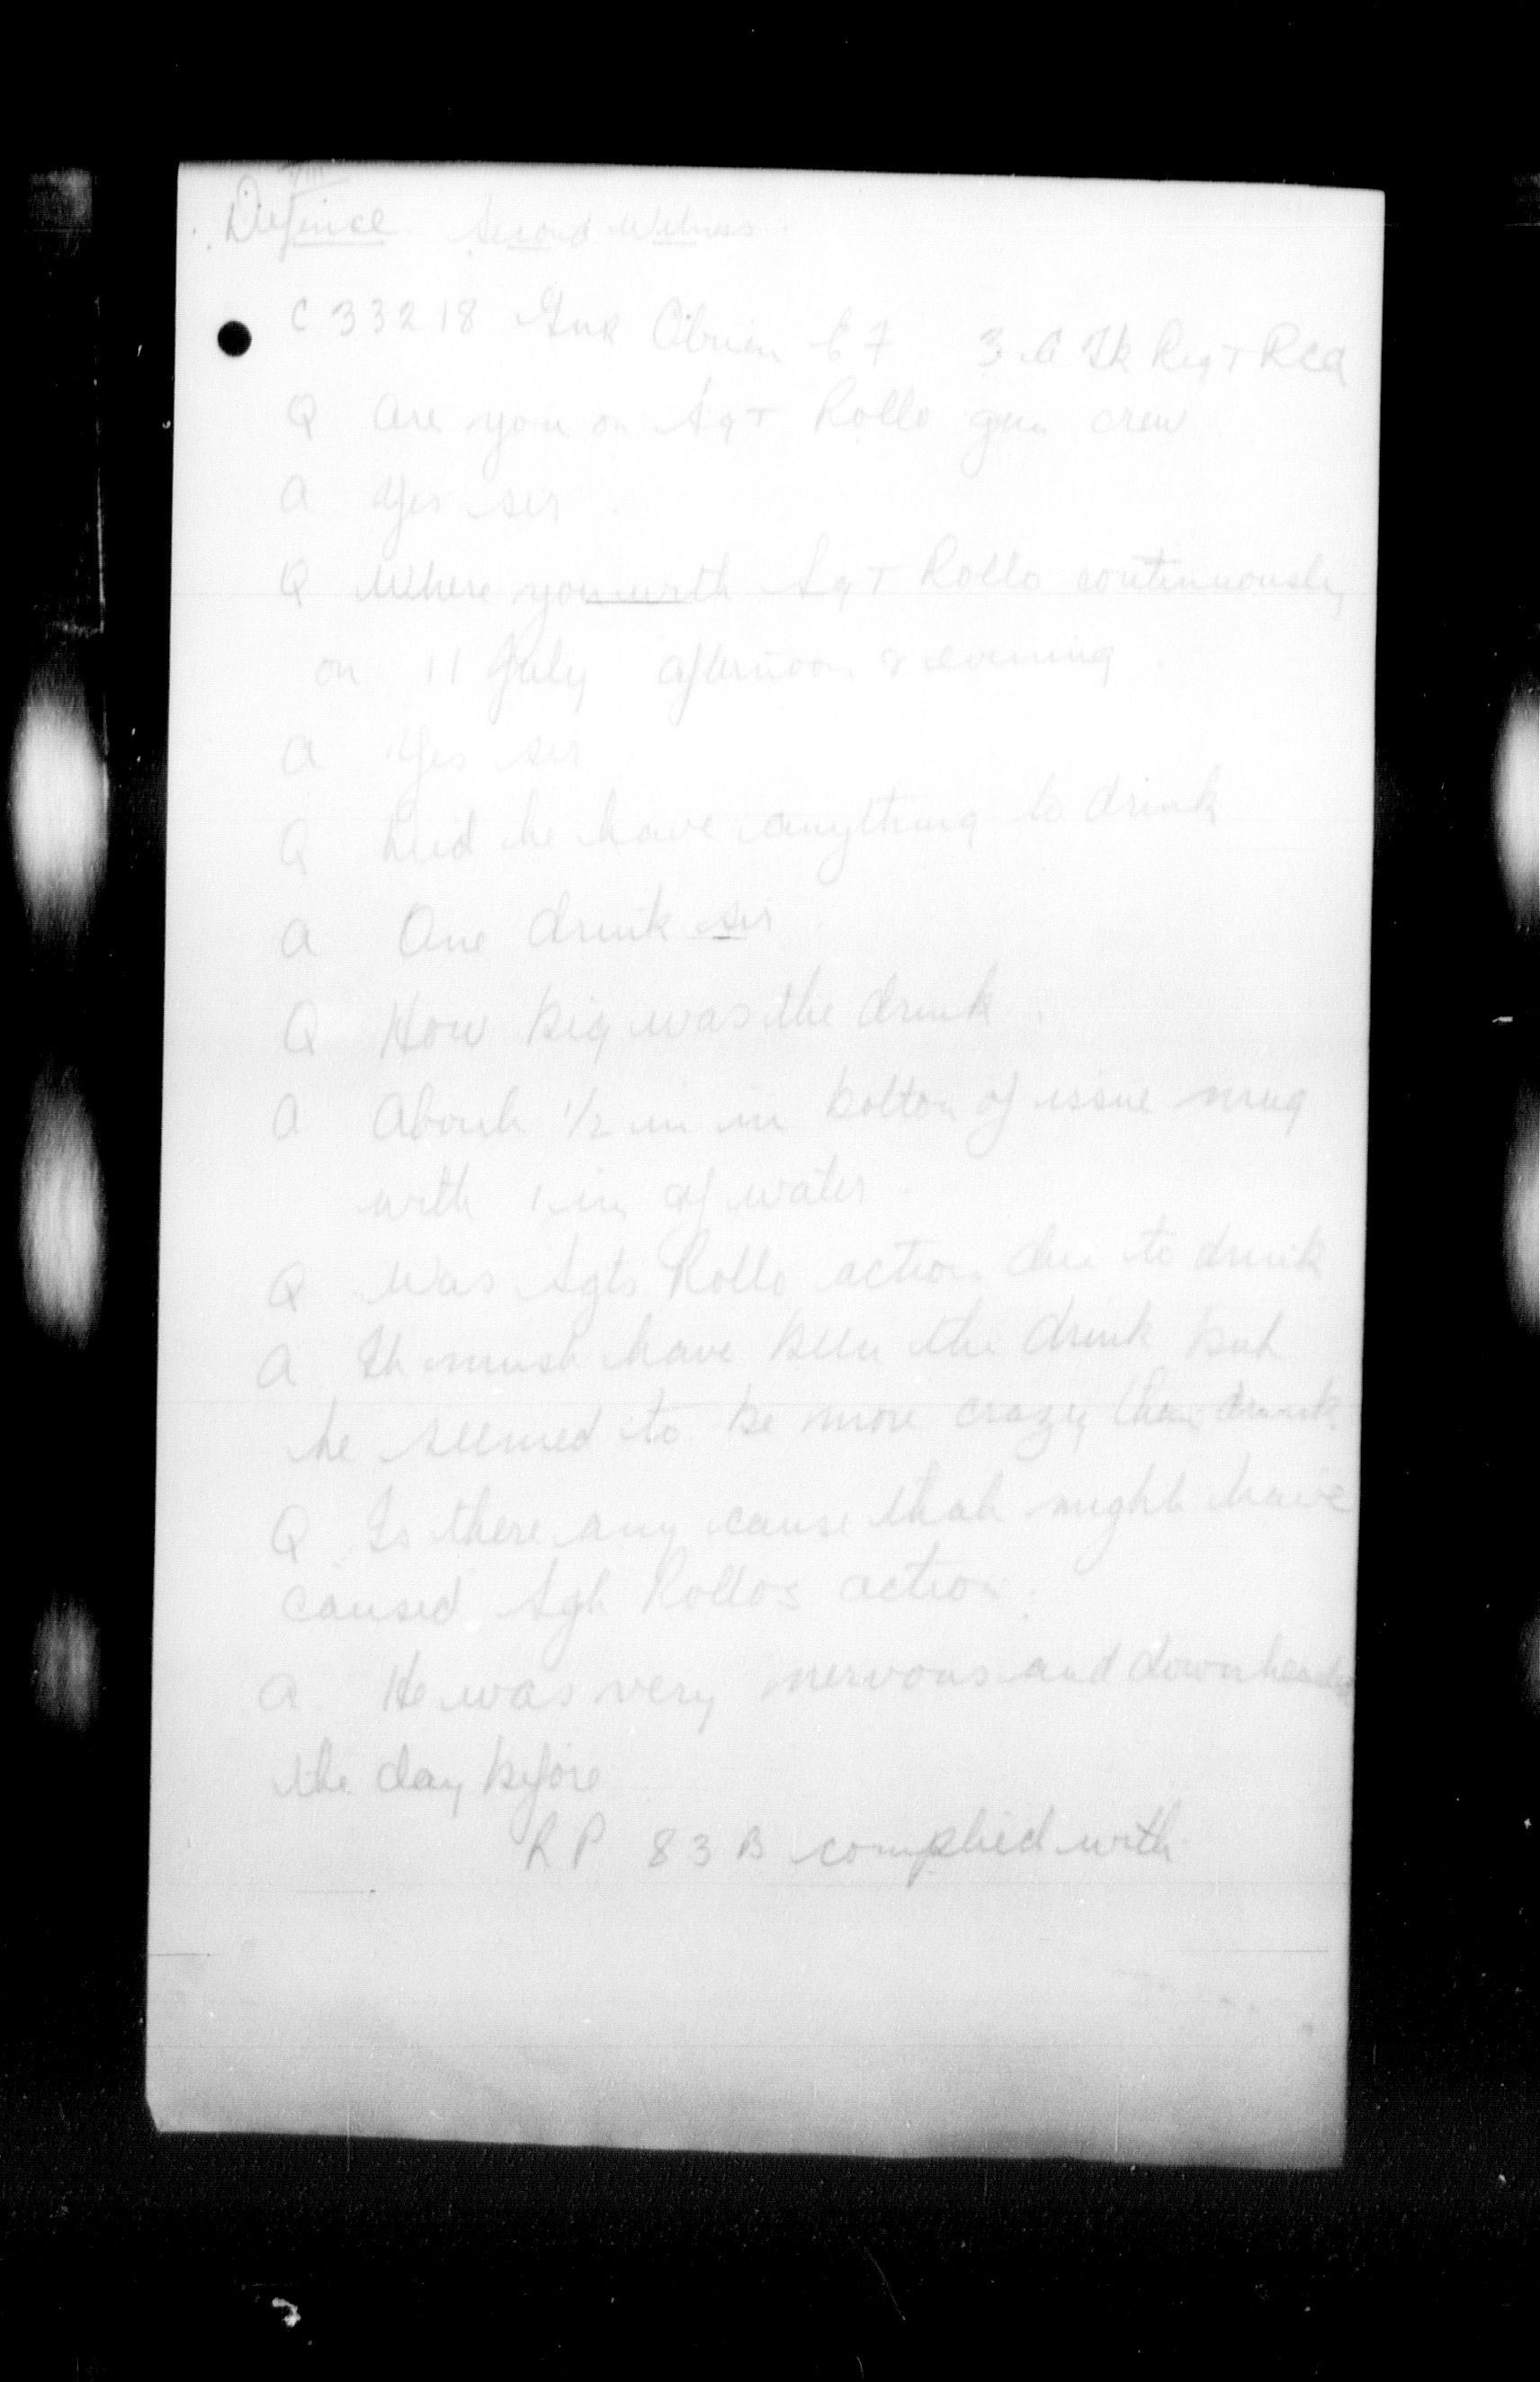 VIII
Defence Second Witness.
C 33218 Gnr Obrien E F 3 A Tk Regt RCA
Q Are you on Sgt Rollo gun crew.
A Yes sir.
Q Where you with Sgt Rollo continuously
on 11 July afternoon & evening.
A Yes sir
Q Did he have anything to drink
A One drink sir
Q How big was the drink.
A About 1/2 in in bottom of issue mug
with 1 in of water.
Q Was Sgts Rollo action due to drink
A It must have been the drink but
he seemed to be more crazy than drunk
Q Is there any cause that might have
caused Sgt Rollos action.
A He was very nervous and downhearted
the day before
RP 83 B complied with